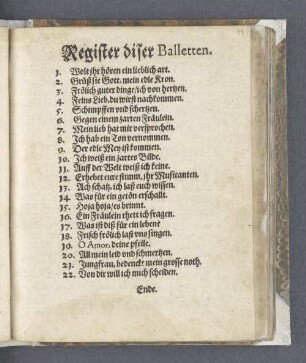 Register diser Balletten.
1. Wolt ihr hören ein lieblich art.
2. Grüß sie Gott, mein edle Kron.
3. Frölich guter dinge/ich von hertzen.
4. Feins Lieb, du wirst nachkommen.
5. Schimpffen und schertzen.
6. Gegen einem zarten Fräulein.
7. Mein lieb hat mir versprochen.
8. Ich hab ein Ton vernommen.
9. Der edle Mey ist kommen.
10. Ich weiß ein zartes Bilde.
11. Auff der Welt weiß ich keine.
12. Erhebet eure stimm, ihr Musicanten.
13. Ach schatz, ich laß euch wissen.
14. Was für ein getön erschallt.
15. Hoja hoja/es brinnt.
16. Ein Fräulein thett ich fragen.
17. Was ist diß für ein leben?
18. Frisch frölich laßt uns singen.
19. O Amor, deine pfeile.
20. All mein leid und schmertzen.
21. Jungfrau, bedenckt mein grosse noth.
22. Von dir will ich mich scheiden.
Ende.